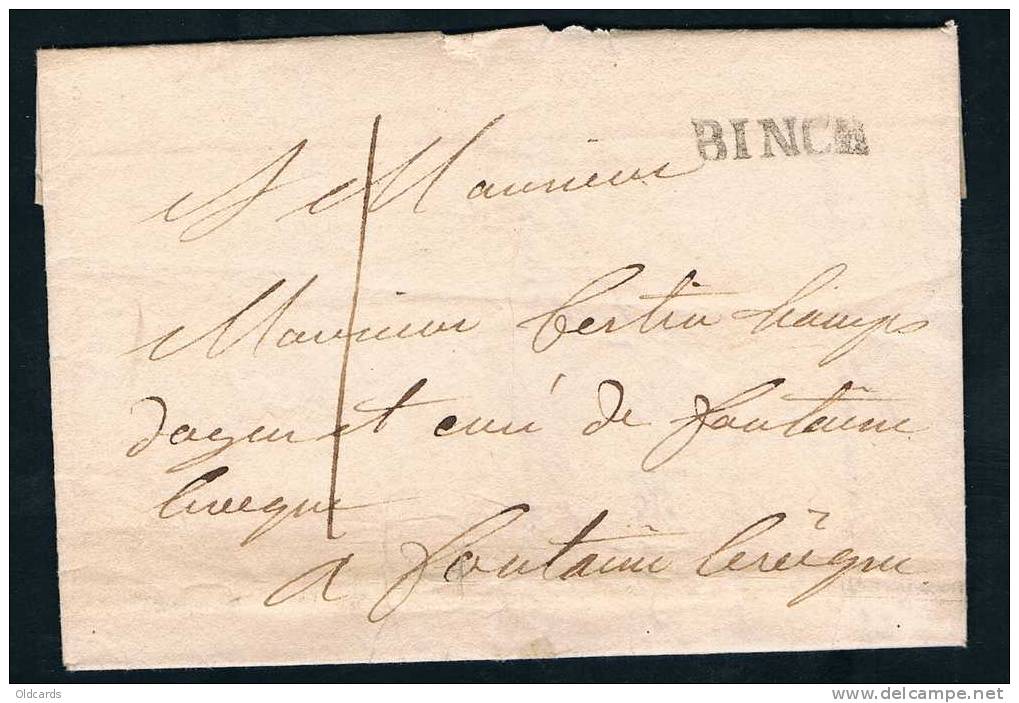 BINCH
A Monsieur
Monsieur bertin champs
doyen et curé de fontaine
leveque
A fontaine levêque
Oldcards
www.delcampe.net